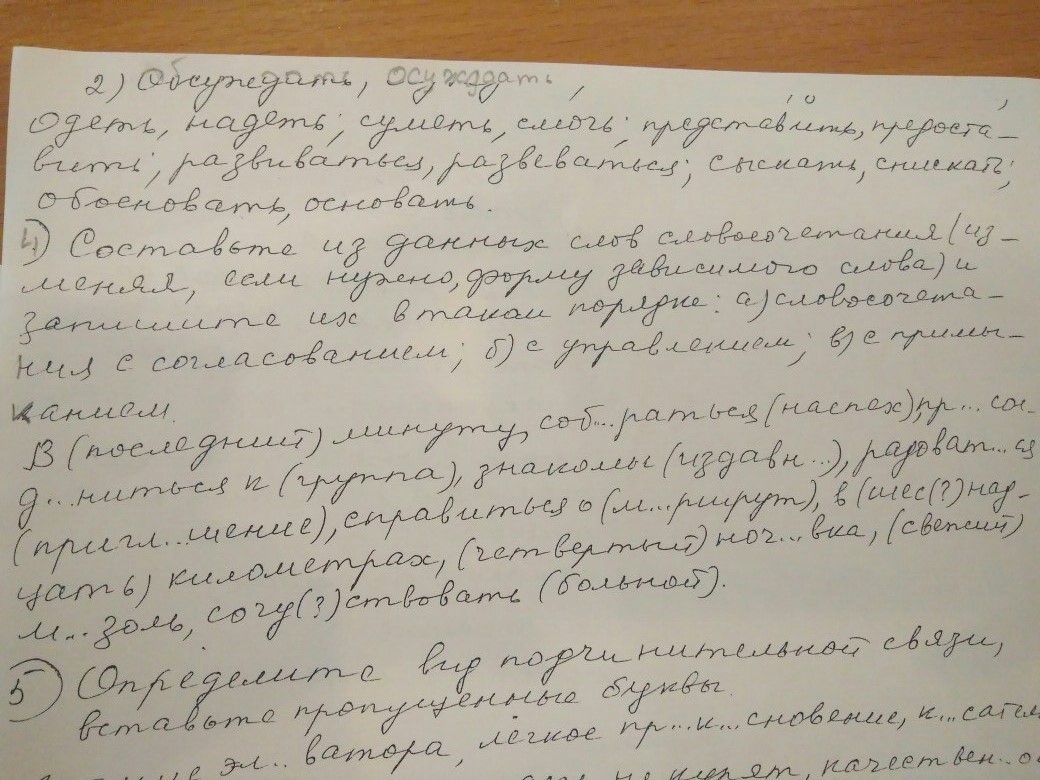 2) Обсуждать, осуждать,
одеть, надеть; суметь, смочь; представить, предоста-
вить; развиваться, развеваться; сыскать, снискать;
обосновать, основать.
4) Составьте из данных слов словосочетания (из-
меняя, если нужно, форму зависимого слова) и
запишите их в таком порядке: а) словосочета-
ния с согласованием; б) с управлением; в) с примы-
канием.
В (последний) минуту, соб...раться (наспех), пр...сое-
д...ниться к (группа), знакомы (издавн...), радоват...ся
(пригл...шение), справиться о (м...ршрут), в (шес(?)над-
цать) километрах, (четвертый) ноч...вка, (свежий)
м...золь, сочу(?)ствовать (больной).
5) Определите вид подчинительной связи,
вставьте пропущенные буквы.
эл...ватора, лёгкое пр...к...сновение, к...сател
не купят, качествен...о